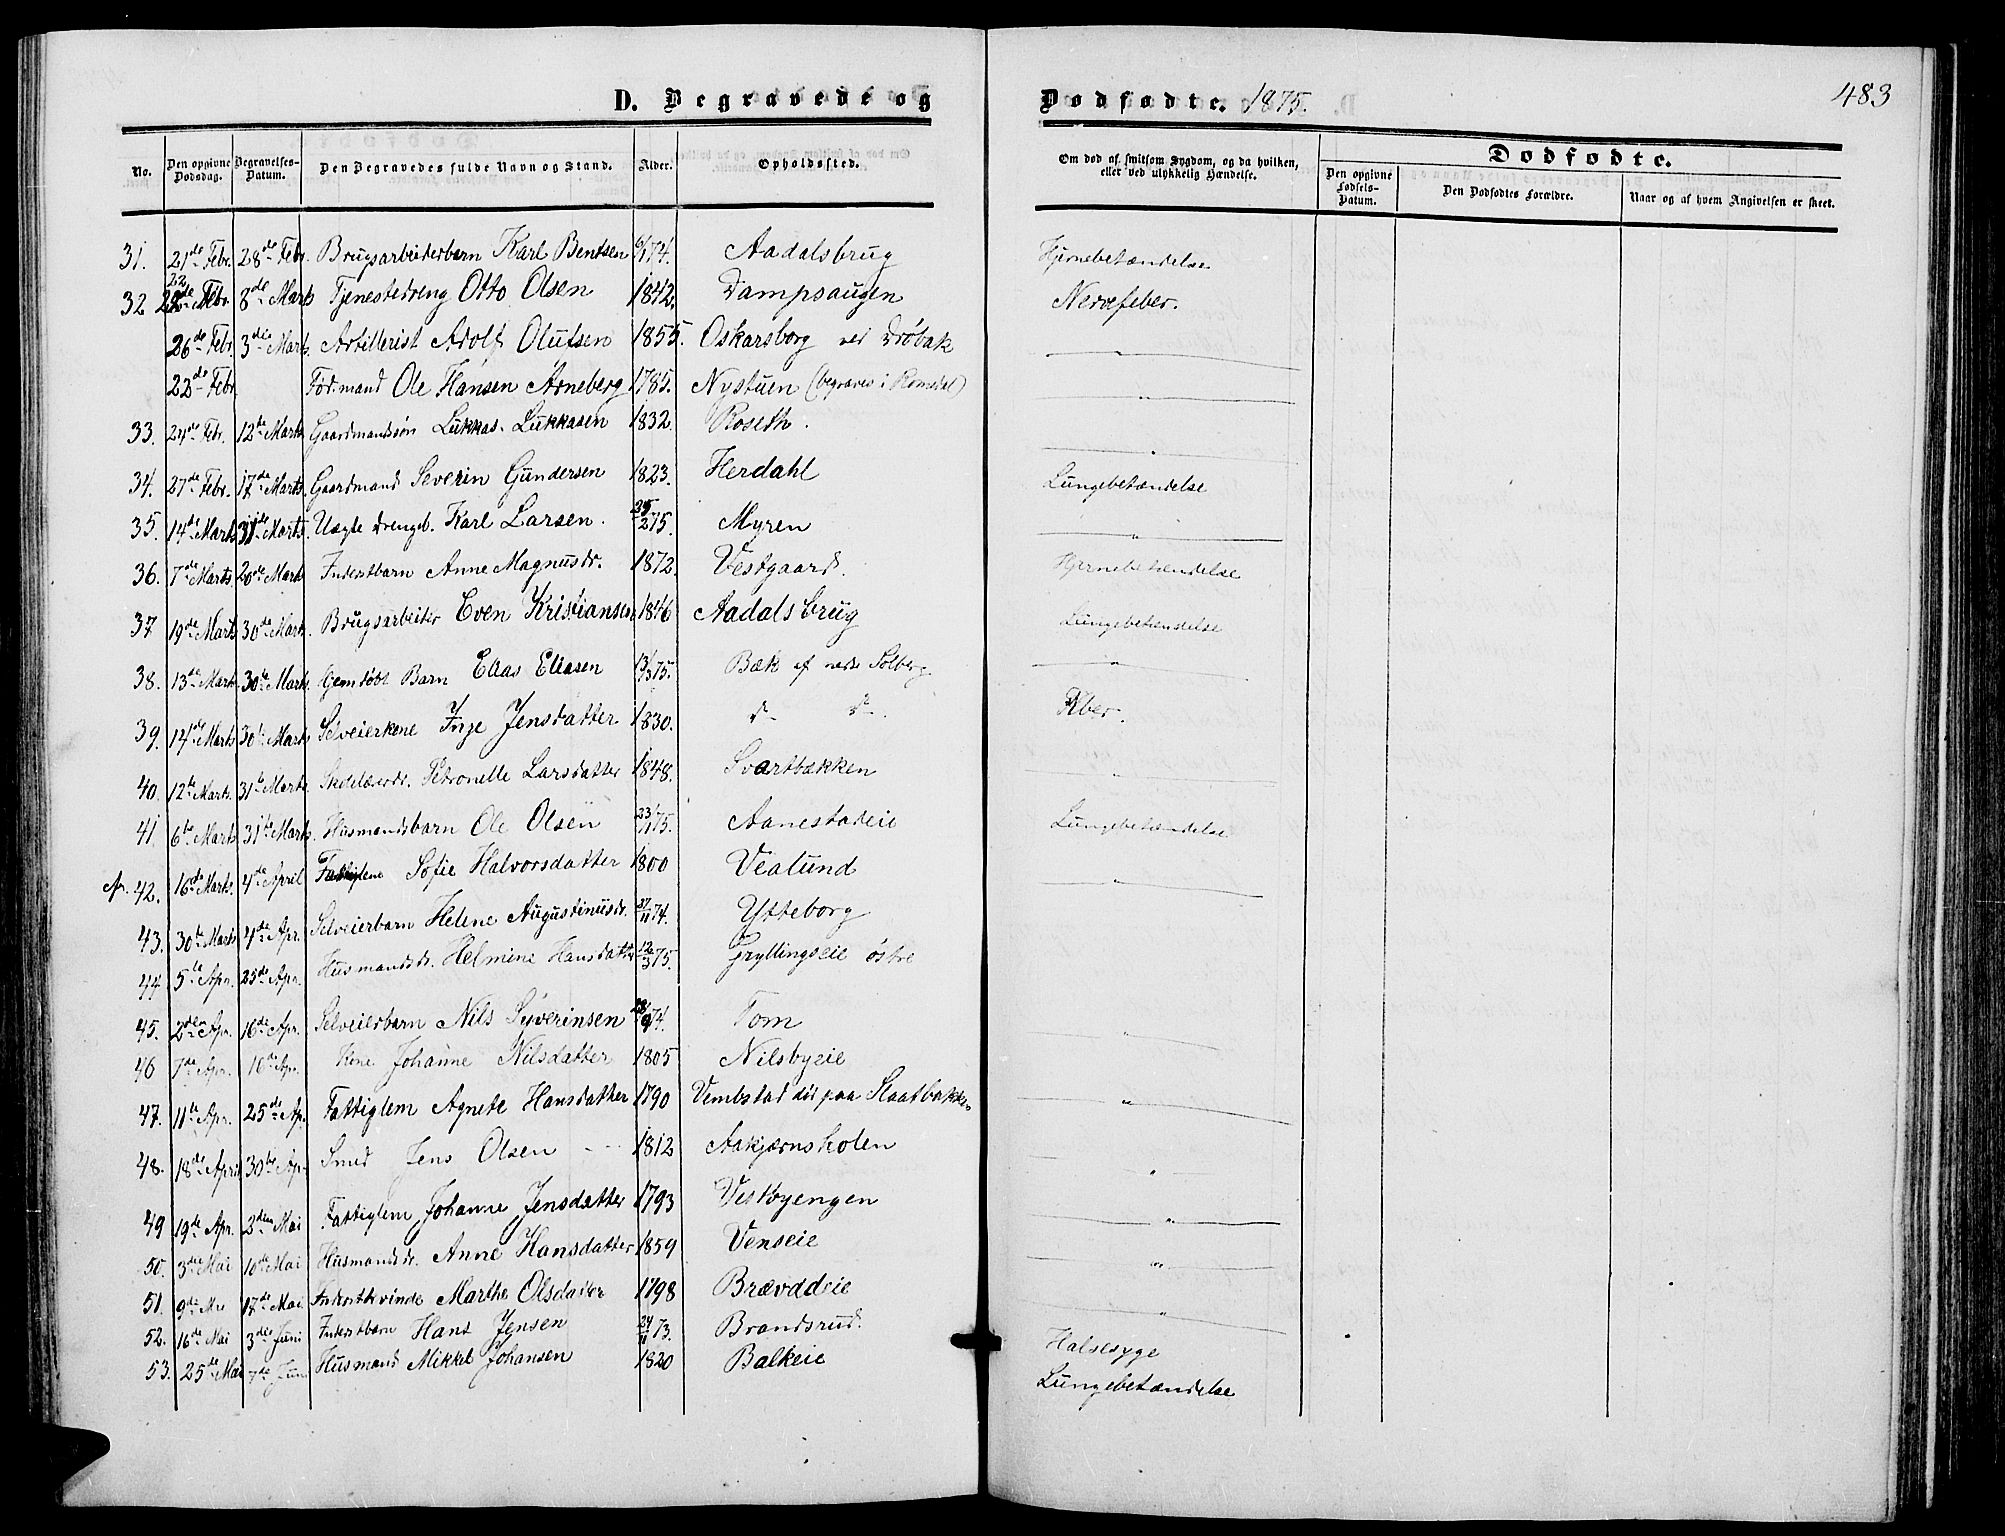 D. Begravede og Dødfødte. 1875. 483
No. Den opgivne Dødsdag. Begravelses-Datum. Den Begravedes fulde Navn og Stand. Alder. Opholdssted. Om død af smitsom Sygdom, og da hvilken, eller ved ulykkelig Hændelse. Dødfødte.
Den opgivne Fødsels-Datum. Den Dødfødtes Forældre. Naar og af hvem Angivelsen er skeet.
31. 21de Febr. 28de Febr. Brugsarbeiderbarn Karl Bentsen 6/1 74. Aadalsbrug Hjernebetændelse
32 22de Febr. 8de Marts Tjenestedreng Otto Olsen 1842. Dampsaugen Nervefeber.
26de Febr. 3die Marts. Artillerist Adolf Olufsen 1855. Oskarsborg ved Drøbak "
22de Febr. Fød.mand Ole Hansen Arneberg 1785. Nystuen (begraves i Romedal) "
33. 24de Febr. 12te Marts Gaardmandssøn Lukkas Lukkasen 1832. Roseth. "
34. 27de Febr. 17de Marts. Gaardmand Severin Gundersen 1823. Herdahl Lungebetændelse
35. 14de Marts 31te Marts. Uægte Drengeb. Karl Larsen. 25/2 75. Myren "
36. 7de Marts 20de Marts Inderstbarn Anne Magnusdr. 1872. Vestgaard. Hjernebetændelse
37 19de Marts 30te Marts. Brugsarbeider Even Kristiansen 1846 Aadalsbrug Lungebetændelse
38. 13de Marts 30te Marts. Hjemdøbt Barn Elias Eliasen 13/3 75. Bæk af nedre Solberg "
39. 14de Marts 30te Marts Selveierkone Inge Jensdatter 1830. d- d-.
40. 12te Marts. 31te Marts Petronelle Larsdatter 1848. Svartbækken "
41. 6te Marts 31te Marts. Husmandsbarn Ole Olsen 23/1 75. Aanestadeie Lungebetændelse
Ap. 42. 16de Marts. 4de April Fattiglem Sofie Halvorsdatter 1800 Vealund "
43. 30te Marts 4de Apr. Selveierbarn Helene Augustinusdr. 27/11 74. Ytteborg
44 5te Apr. 25de Apr. Husmandsdr. Helmine Hansdatter 12/3 75. Gryllingseie østre
45. 2den Apr. 16de Apr. Selveierbarn Nils Syverinsen 28/9 74. Tom "
46 7de Apr. 16de Apr. Kone Johanne Nilsdatter 1805 Nilsbyeie
47. 11te Apr. 25de Ap. Fattiglem Agnete Hansdatter 1790 Vembstad død paa Slaatbakken "
48. 18de April 30te Apr. Smed Jens Olsen - - 1812 Aakjærnsholen "
49 19de Apr. 2den Mai Fattiglem Johanne Jensdatter 1793 Vestbyengen "
50. 3die Mai 10de Mai Husmandsdr. Anne Hansdatter 1859 Venseie "
51. 9de Mai 17de Mai Inderstkvinde Marthe Olsdatter 1798 Brævddeie "
52. 16de Mai 3die Juni Inderstbarn Hans Jensen 24/11 73. Brandsrud. Halsesyge
53. 25de Mai 7de Juni Husmand Mikkel Johansen 1820 Balkeie Lungebetændelse